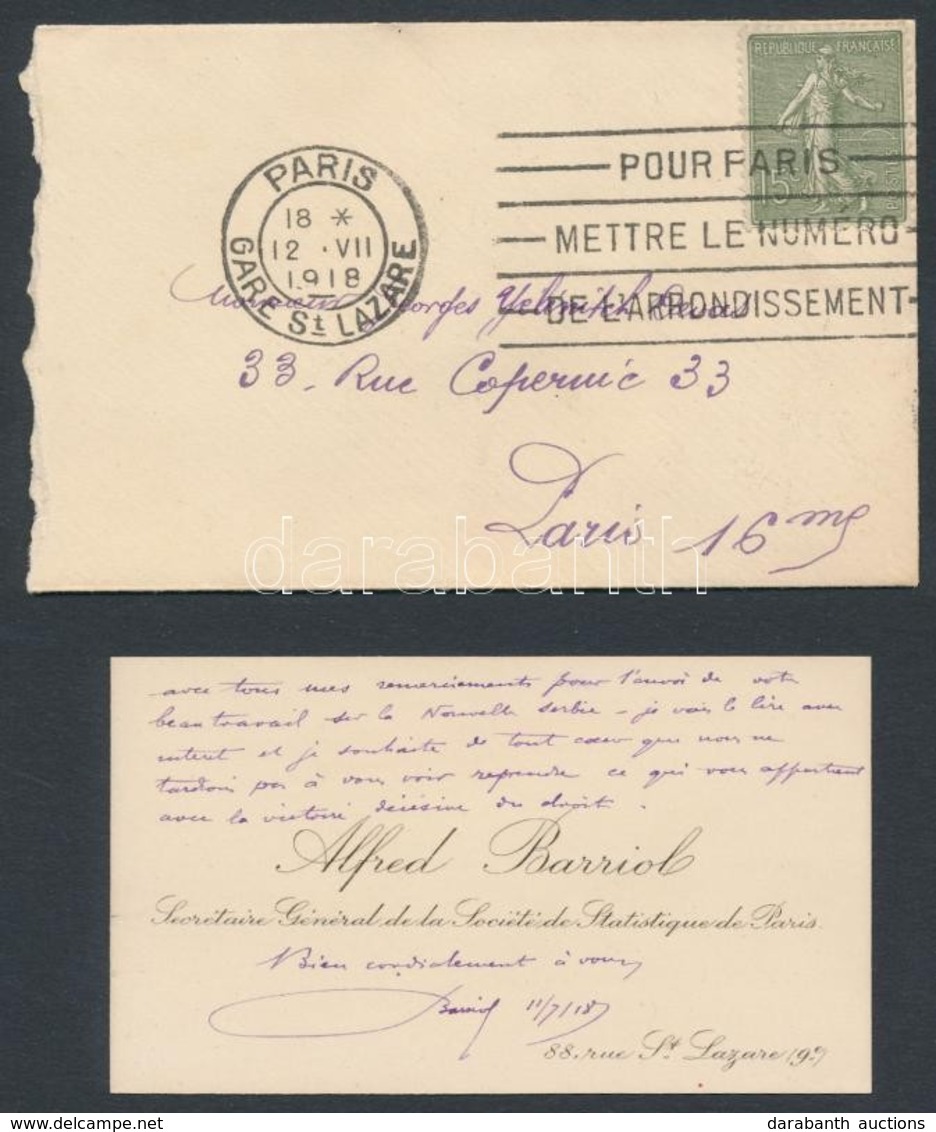 REPUBLIQUE FRANÇAISE
15
POSTES
PARIS
18 *
12 · VII
1918
GARE St LAZARE
POUR PARIS
METTRE LE NUMÉRO
DE L'ARRONDISSEMENT
Monsieur Georges
33. Rue Copernic 33
Paris 16 me
darabanth
avec tous mes remerciements pour l'envoi de votre
beau travail sur la Nouvelle Serbie - je vais le lire avec
interet et je souhaite de tout cœur que nous ne
tardions pas à vous voir reprendre ce qui vous appartient
avec la victoire décisive du droit.
Alfred Barriol
Secrétaire Général de la Société de Statistique de Paris.
Bien cordialement à vous,
Barriol 11/7/18
88, rue St Lazare (9e)
www.delcampe.net
darabanth auctions